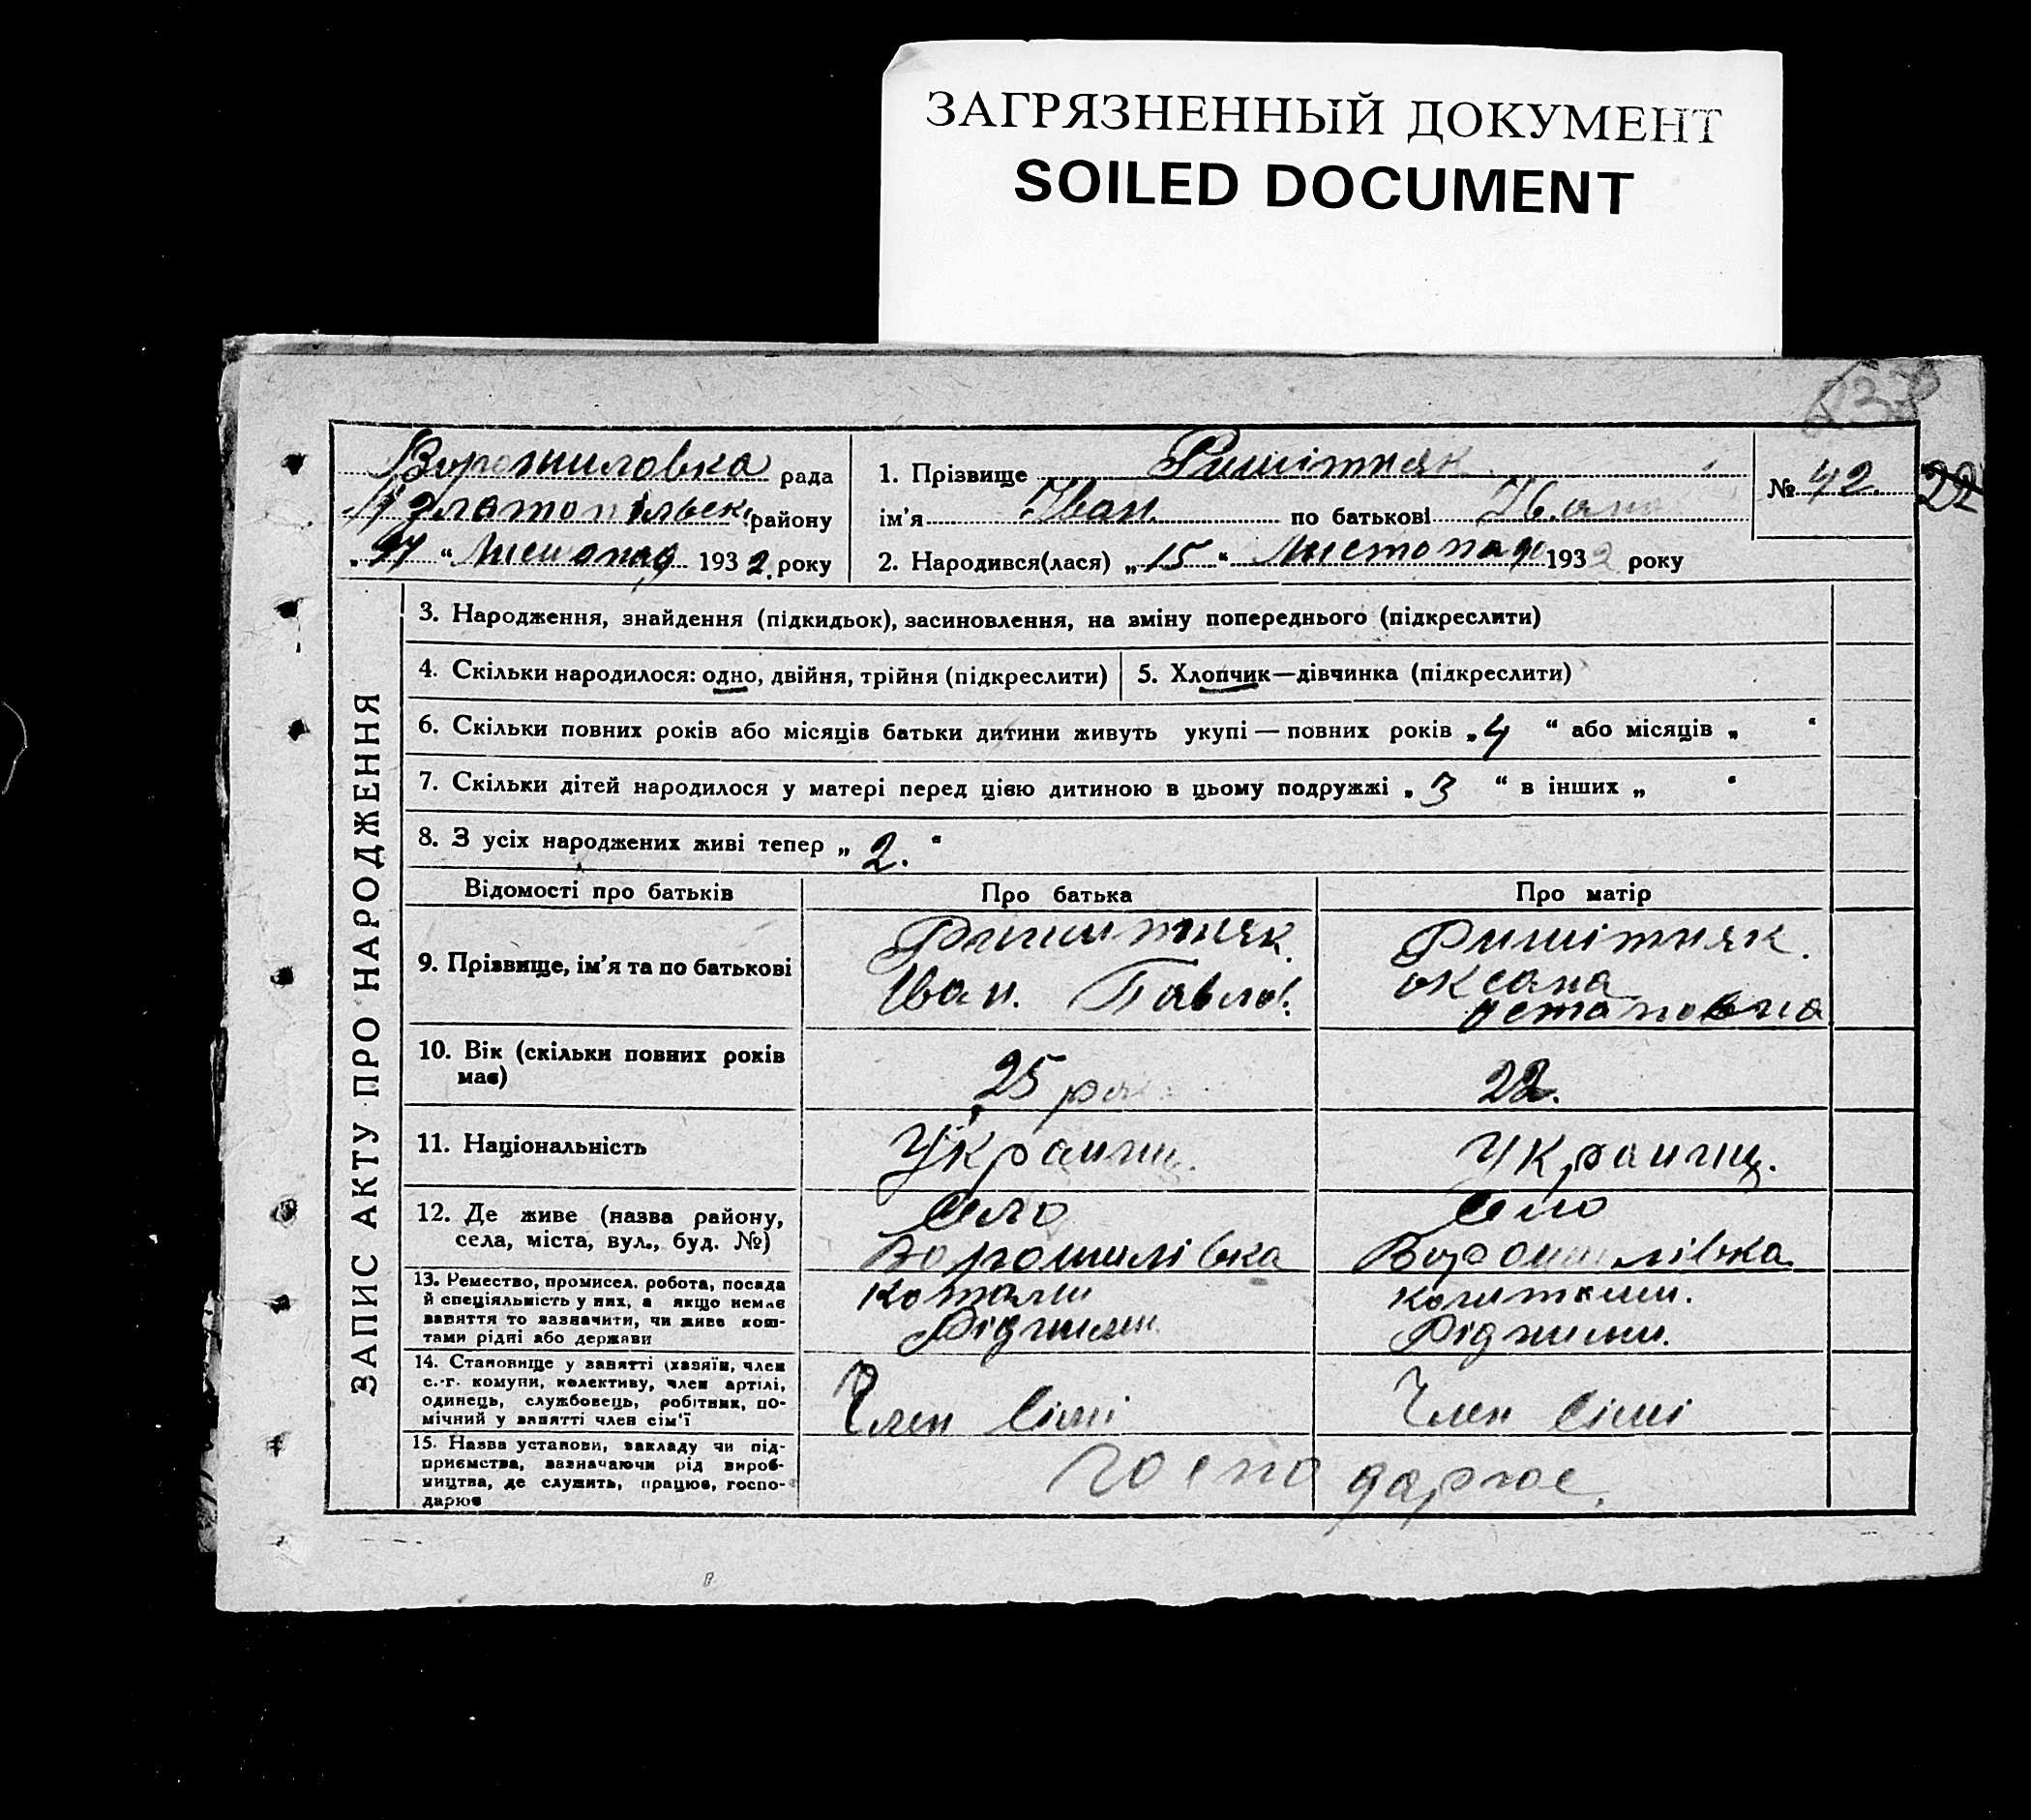 ЗАГРЯЗНЕННЫЙ ДОКУМЕНТ
SOILED DOCUMENT
Ворошиловка рада
Златопільськ. району
„ “ Листопад 1932 року
1. Прізвище Ришітняк
ім’я Іван по батькові Іван
2. Народився(лася) „15“ Листопад 1932 року
№ 42
22
ЗАПИС АКТУ ПРО НАРОДЖЕННЯ
3. Народження, знайдення (підкидьок), засиновлення, на зміну попереднього (підкреслити)
4. Скільки народилося: одно, двійня, трійня (підкреслити)
5. Хлопчик—дівчинка (підкреслити)
6. Скільки повних років або місяців батьки дитини живуть укупі — повних років „4“ або місяців „ “
7. Скільки дітей народилося у матері перед цією дитиною в цьому подружжі „3“ в інших „ “
8. З усіх народжених живі тепер „2.“
Відомості про батьків Про батька Про матір
9. Прізвище, ім’я та по батькові
Ришитняк
Іван. Павлов.
Ришітняк.
оксана
остаповна
10. Вік (скільки повних років
має)
25
22.
11. Національність
Украинц.
Украинц.
12. Де живе (назва району,
села, міста, вул., буд. №)
Село
Ворошилівка
Село
Ворошилівка
13. Ремество, промисел. робота, посада
й спеціяльність у них, а якщо немає
заняття то зазначити, чи живе кош-
тами рідні або держави
Котами
Рідними
коштами.
Рідними.
14. Становище у занятті (хазяїн, член
с.-г. комуни, колективу, член артілі,
одинець, службовець, робітник, по-
мічний у занятті член сім’ї
Член сімі
Член сімі
15. Назва установи, закладу чи під-
приємства, зазначаючи рід вироб-
ництва, де служить, працює, госпо-
дарює
господарює.